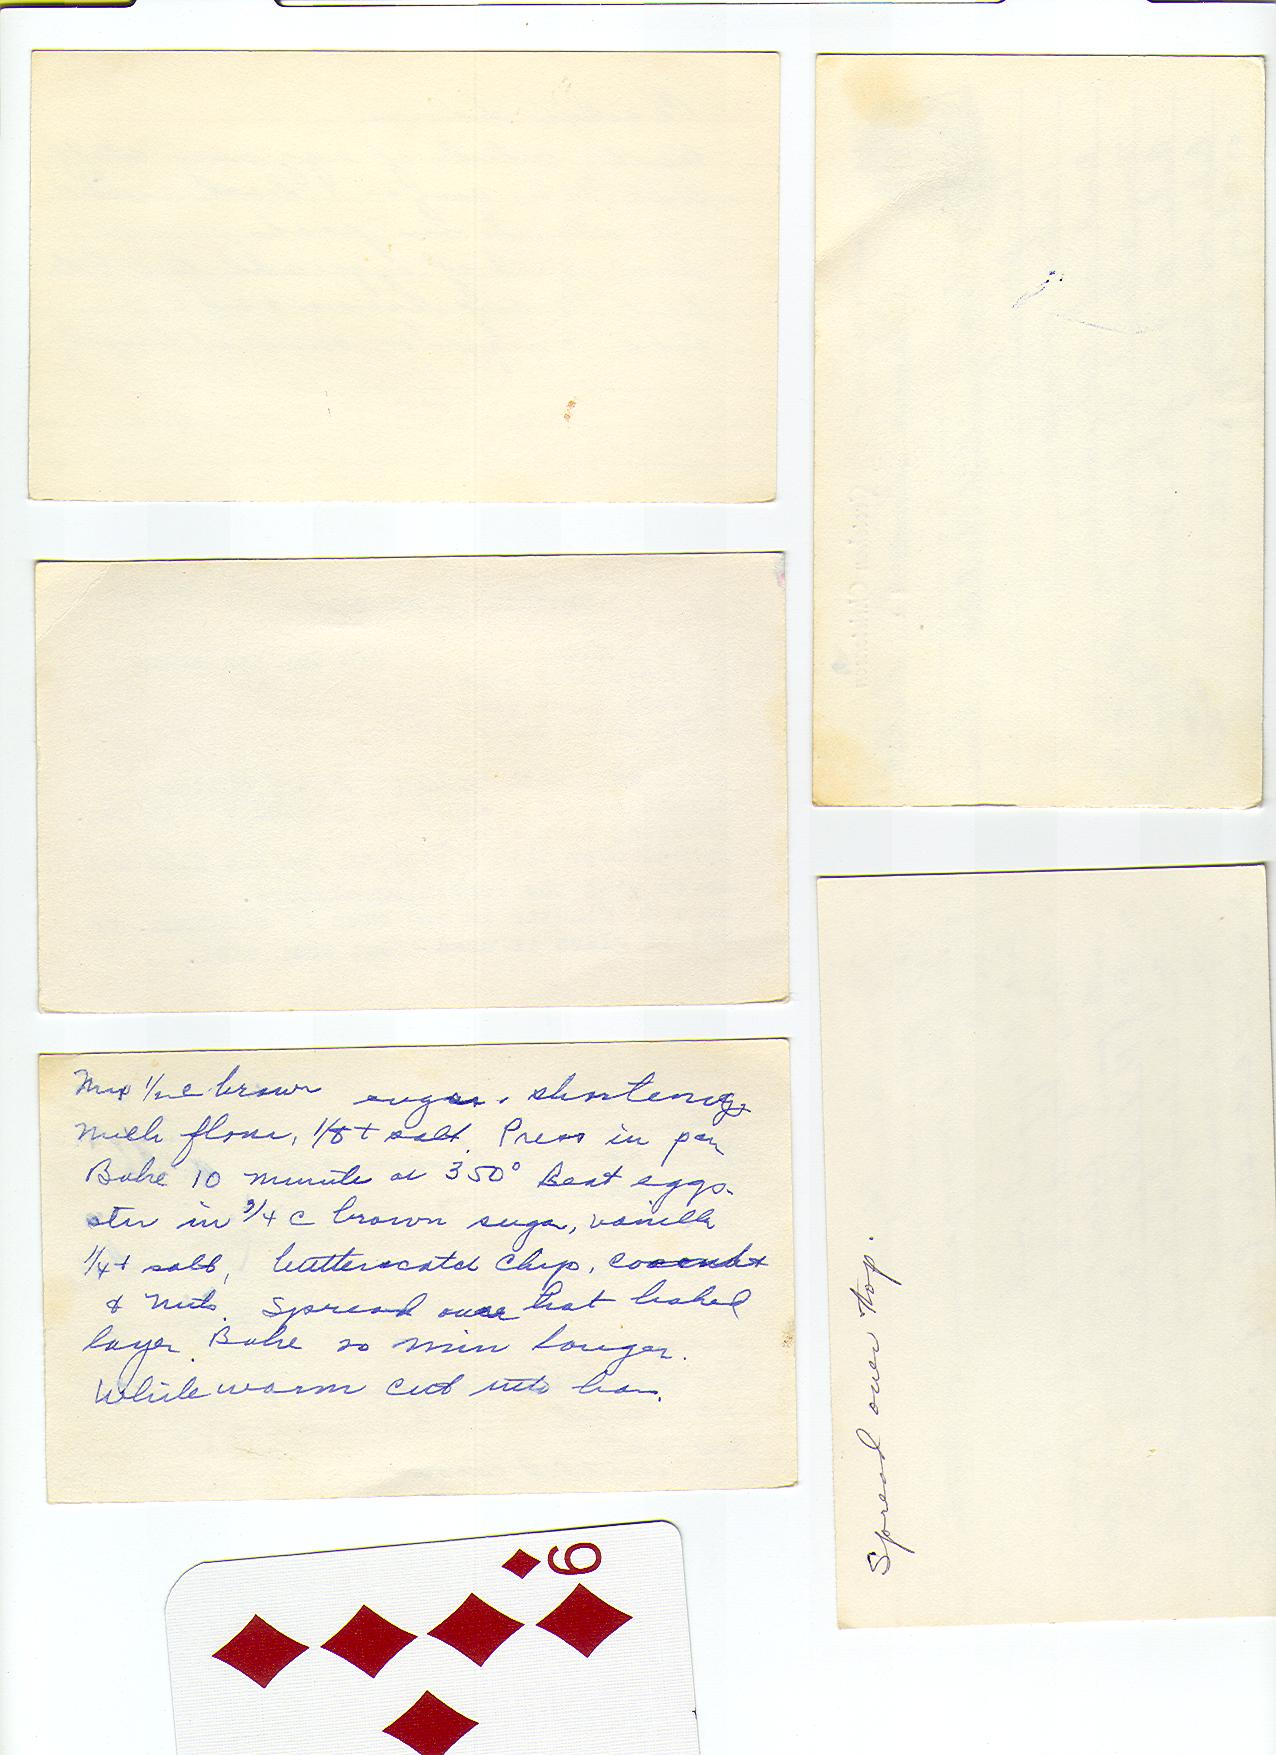 Mix 1/2 c brown sugar, shortening
with flour, 1/8 t salt. Press in pan
Bake 10 minute at 350° Beat eggs.
stir in 3/4 c brown sugar, vanilla
1/4 t salt, butterscotch chip, coconut
& nuts. Spread over hot baked
layer. Bake 20 min longer.
While warm cut into bar.
Spread over top.
9